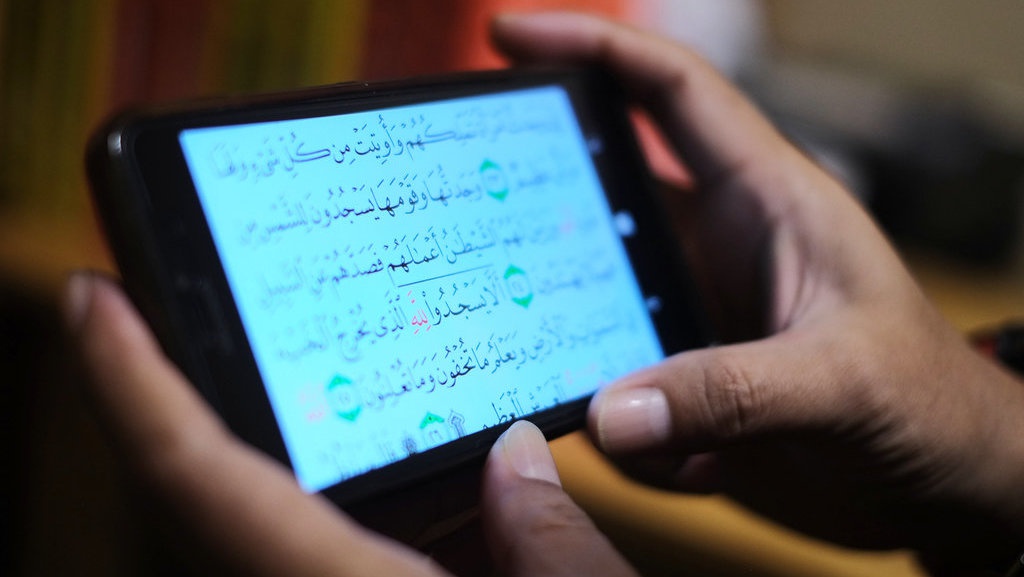 تَمْلِكُهُمْ وَأُوتِيَتْ مِن كُلِّ شَىْءٍ وَلَهَا
وَجَدتُّهَا وَقَوْمَهَا يَسْجُدُونَ لِلشَّمْسِ مِن
لَهُمُ ٱلشَّيْطَٰنُ أَعْمَٰلَهُمْ فَصَدَّهُمْ عَنِ ٱلسَّبِيلِ
يَهْتَدُونَ ٢٤ أَلَّا يَسْجُدُوا۟ لِلَّهِ ٱلَّذِى يُخْرِجُ ٱلْخَبْءَ
وَٱلْأَرْضِ وَيَعْلَمُ مَا تُخْفُونَ وَمَا تُعْلِنُونَ ٢٥
ٱلْعَرْشِ ٱلْعَظِيمِ ٢٦